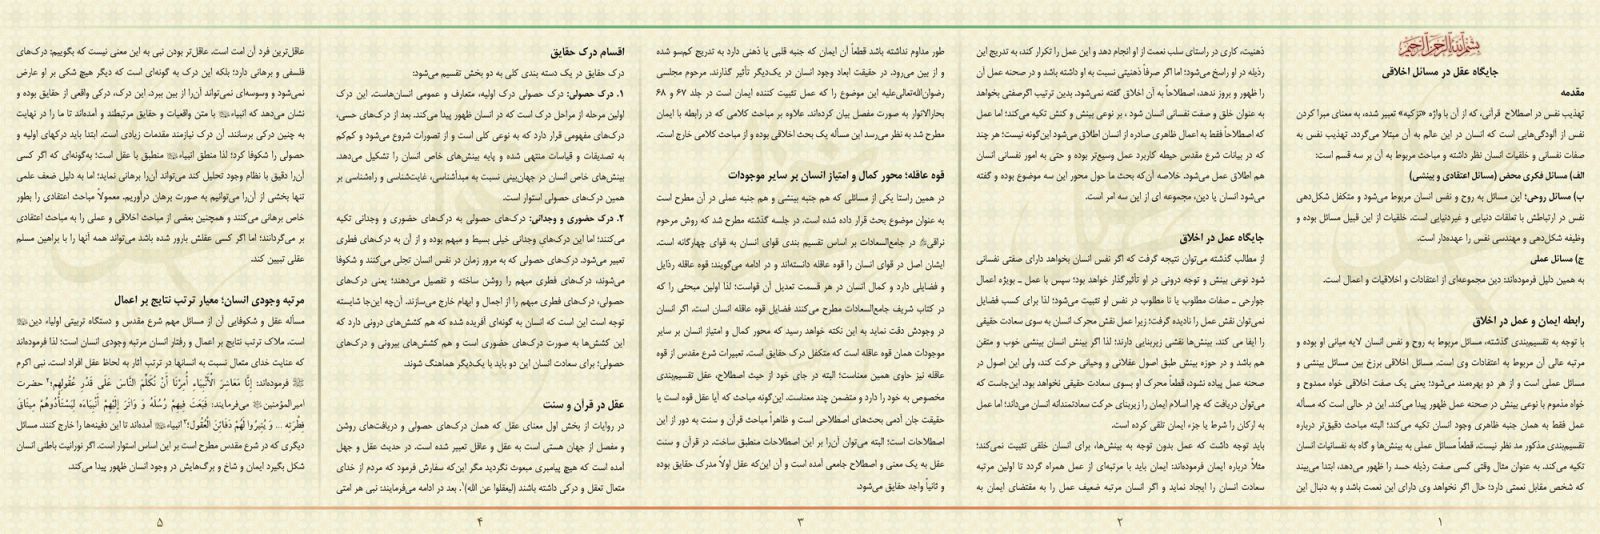 بسم الله الرحمن الرحیم
جایگاه عقل در مسائل اخلاقی
مقدمه
تهذیب نفس در اصطلاح قرآنی، که از آن با واژه «تزکیه» تعبیر شده، به معنای مبرا کردن
نفس از آلودگی‌هایی است که انسان در این عالم به آن مبتلا می‌گردد. تهذیب نفس به
صفات نفسانی و خلقیات انسان نظر داشته و مباحث مربوط به آن بر سه قسم است:
الف) مسائل فکری محض (مسائل اعتقادی و بینشی)
ب) مسائل روحی: این مسائل به روح و نفس انسان مربوط می‌شود و متکفل شکل‌دهی
نفس در ارتباطش با تعلقات دنیایی و غیردنیایی است. خلقیات از این قبیل مسائل بوده و
وظیفه شکل‌دهی و مهندسی نفس را عهده‌دار است.
ج) مسائل عملی
به همین دلیل فرموده‌اند: دین مجموعه‌ای از اعتقادات و اخلاقیات و اعمال است.
رابطه ایمان و عمل در اخلاق
با توجه به تقسیم‌بندی گذشته، مسائل مربوط به روح و نفس انسان لایه میانی او بوده و
مرتبه عالی آن مربوط به اعتقادات وی است. مسائل اخلاقی برزخ بین مسائل بینشی و
مسائل عملی است و از هر دو بهره‌مند می‌شود؛ یعنی یک صفت اخلاقی خواه ممدوح و
خواه مذموم با نوعی بینش در صحنه عمل ظهور پیدا می‌کند. این در حالی است که مسأله
عمل فقط به همان جنبه ظاهری وجود انسان تکیه می‌کند؛ البته مباحث دقیق‌تر درباره
تقسیم‌بندی مذکور مد نظر نیست. قطعاً مسائل عملی به بینش‌ها و گاه به نفسانیات انسان
تکیه می‌کند. به عنوان مثال وقتی کسی صفت رذیله حسد را ظهور می‌دهد، ابتدا می‌بیند
که شخص مقابل نعمتی دارد؛ حال اگر نخواهد وی دارای این نعمت باشد و به دنبال این
۱
ذهنیت، کاری در راستای سلب نعمت از او انجام دهد و این عمل را تکرار کند، به تدریج این
رذیله در او راسخ می‌شود؛ اما اگر صرفاً ذهنیتی نسبت به او داشته باشد و در صحنه عمل آن
را ظهور و بروز ندهد، اصطلاحاً به آن اخلاق گفته نمی‌شود. بدین ترتیب اگرصفتی بخواهد
به عنوان خلق و صفت نفسانی انسان شود ، بر نوعی بینش و کنش تکیه می‌کند؛ اما عمل
که اصطلاحاً فقط به اعمال ظاهری صادره از انسان اطلاق می‌شود این‌گونه نیست؛ هر چند
که در بیانات شرع مقدس حیطه کاربرد عمل وسیع‌تر بوده و حتی به امور نفسانی انسان
هم اطلاق عمل می‌شود. خلاصه آن‌که بحث ما حول محور این سه موضوع بوده و گفته
می‌شود انسان یا دین، مجموعه ای از این سه امر است.
جایگاه عمل در اخلاق
از مطالب گذشته می‌توان نتیجه گرفت که اگر نفس انسان بخواهد دارای صفتی نفسانی
شود نوعی بینش و توجه درونی در او تأثیرگذار خواهد بود؛ سپس با عمل ـ بویژه اعمال
جوارحی ـ صفات مطلوب یا نا مطلوب در نفس او تثبیت می‌شود؛ لذا برای کسب فضایل
نمی‌توان نقش عمل را نادیده گرفت؛ زیرا عمل نقش محرک انسان به سوی سعادت حقیقی
را ایفا می کند. بینش‌ها نقشی زیربنایی دارند؛ لذا اگر بینش انسانی بینشی خوب و متقن
هم باشد و در حوزه بینش طبق اصول عقلانی و وحیانی حرکت کند، ولی این اصول در
صحنه عمل پیاده نشود، قطعاً محرک او بسوی سعادت حقیقی نخواهد بود. این‌جاست که
می‌توان دریافت که چرا اسلام ایمان را زیربنای حرکت سعادتمندانه انسان می‌داند؛ اما عمل
به ارکان را شرط یا جزء ایمان تلقی کرده است.
باید توجه داشت که عمل بدون توجه به بینش‌ها، برای انسان خلقی تثبیت نمی‌کند؛
مثلاً درباره ایمان فرموده‌اند: ایمان باید با مرتبه‌ای از عمل همراه گردد تا اولین مرتبه
سعادت انسان را ایجاد نماید و اگر انسان مرتبه ضعیف عمل را به مقتضای ایمان به
۲
طور مداوم نداشته باشد قطعاً آن ایمان که جنبه قلبی یا ذهنی دارد به تدریج کم‌سو شده
و از بین می‌رود. در حقیقت ابعاد وجود انسان در یک‌دیگر تأثیر گذارند. مرحوم مجلسی
رضوان‌الله‌تعالی‌علیه این موضوع را که عمل تثبیت کننده ایمان است در جلد ۶۷ و ۶۸
بحارالانوار به صورت مفصل بیان کرده‌اند. علاوه بر مباحث کلامی که در رابطه با ایمان
مطرح شد به نظر می‌رسد این مسأله یک بحث اخلاقی بوده و از مباحث کلامی خارج است.
قوه عاقله؛ محور کمال و امتیاز انسان بر سایر موجودات
در همین راستا یکی از مسائلی که هم جنبه بینشی و هم جنبه عملی در آن مطرح است
به عنوان موضوع بحث قرار داده شده است. در جلسه گذشته مطرح شد که روش مرحوم
نراقی در جامع‌السعادات بر اساس تقسیم بندی قوای انسان به قوای چهارگانه است.
ایشان اصل در قوای انسان را قوه عاقله دانسته‌اند و در ادامه می‌گویند: قوه عاقله رذایل
و فضایلی دارد و کمال انسان در هر قسمت تعدیل آن قواست؛ لذا اولین مبحثی را که
در کتاب شریف جامع‌السعادات مطرح می‌کنند فضایل قوه عاقله انسان است. اگر انسان
در وجودش دقت نماید به این نکته خواهد رسید که محور کمال و امتیاز انسان بر سایر
موجودات همان قوه عاقله است که متکفل درک حقایق است. تعبیرات شرع مقدس از قوه
عاقله نیز حاوی همین معناست؛ البته در جای خود از حیث اصطلاح، عقل تقسیم‌بندی
مخصوص به خود را دارد و متضمن چند معناست. این‌گونه مباحث که آیا عقل قوه است یا
حقیقت جان آدمی بحث‌های اصطلاحی است و ظاهراً مباحث قرآن و سنت به دور از این
اصطلاحات است؛ البته می‌توان آن‌را بر این اصطلاحات منطبق ساخت. در قرآن و سنت
عقل به یک معنی و اصطلاح جامعی آمده است و آن این‌که عقل اولاً مدرک حقایق بوده
و ثانیاً واجد حقایق می‌شود.
۳
اقسام درک حقایق
درک حقایق در یک دسته بندی کلی به دو بخش تقسیم می‌شود:
۱. درک حصولی: درک حصولی درک اولیه، متعارف و عمومی انسان‌هاست. این درک
اولین مرحله از مراحل درک است که در انسان ظهور پیدا می‌کند. بعد از درک‌های حسی،
درک‌های مفهومی قرار دارد که به نوعی کلی است و از تصورات شروع می‌شود و کم‌کم
به تصدیقات و قیاسات منتهی شده و پایه بینش‌های خاص انسان را تشکیل می‌دهد.
بینش‌های خاص انسان در جهان‌بینی نسبت به مبدأشناسی، غایت‌شناسی و راه‌شناسی بر
همین درک‌های حصولی استوار است.
۲. درک حضوری و وجدانی: درک‌های حصولی به درک‌های حضوری و وجدانی تکیه
می‌کنند؛ اما این درک‌های وجدانی خیلی بسیط و مبهم بوده و از آن به درک‌های فطری
تعبیر می‌شود. درک‌های حصولی که به مرور زمان در نفس انسان تجلی می‌کنند و شکوفا
می‌شوند، درک‌های فطری مبهم را روشن ساخته و تفصیل می‌دهند؛ یعنی درک‌های
حصولی، درک‌های فطری مبهم را از اجمال و ابهام خارج می‌سازند. آن‌چه این‌جا شایسته
توجه است این است که انسان به گونه‌ای آفریده شده که هم کشش‌های درونی دارد که
این کشش‌ها به صورت درک‌های حضوری است و هم کشش‌های بیرونی و درک‌های
حصولی؛ برای سعادت انسان این دو باید با یک‌دیگر هماهنگ شوند.
عقل در قرآن و سنت
در روایات از بخش اول معنای عقل که همان درک‌های حصولی و دریافت‌های روشن
و مفصل از جهان هستی است به عقل و عاقل تعبیر شده است. در حدیث عقل و جهل
آمده است که هیچ پیامبری مبعوث نگردید مگر این‌که سفارش فرمود که مردم از خدای
متعال تعقل و درکی داشته باشند (لیعقلوا عن الله)۱. بعد در ادامه می‌فرمایند: نبی هر امتی
۴
عاقل‌ترین فرد آن امت است. عاقل‌تر بودن نبی به این معنی نیست که بگوییم: درک‌های
فلسفی و برهانی دارد؛ بلکه این درک به گونه‌ای است که دیگر هیچ شکی بر او عارض
نمی‌شود و وسوسه‌ای نمی‌تواند آن‌را از بین ببرد. این درک، درکی واقعی از حقایق بوده و
نشان می‌دهد که انبیاء با متن واقعیات و حقایق مرتبطند و آمده‌اند تا ما را در نهایت
به چنین درکی برسانند. آن درک نیازمند مقدمات زیادی است. ابتدا باید درکهای اولیه و
حصولی را شکوفا کرد؛ لذا منطق انبیاء منطبق با عقل است؛ به‌گونه‌ای که اگر کسی
آن‌را دقیق با نظام وجود تحلیل کند می‌تواند آن‌را برهانی نماید؛ اما به دلیل ضعف علمی
تنها بخشی از آن‌را می‌توانیم به صورت برهان درآوریم. معمولاً مباحث اعتقادی را بطور
خاص برهانی می‌کنند و همچنین بعضی از مباحث اخلاقی و عملی را به مباحث اعتقادی
بر می‌گردانند؛ اما اگر کسی عقلش بارور شده باشد می‌تواند همه آنها را با براهین مسلم
عقلی تبیین کند.
مرتبه وجودی انسان؛ معیار ترتب نتایج بر اعمال
مسأله عقل و شکوفایی آن از مسائل مهم شرع مقدس و دستگاه تربیتی اولیاء دین
است. ملاک ترتب نتایج بر اعمال و رفتار انسان مرتبه وجودی انسان است؛ لذا فرموده‌اند
که عنایت خدای متعال نسبت به انسانها در ترتب آثار به لحاظ عقل افراد است. نبی اکرم
فرموده‌اند: إِنَّا مَعَاشِرَ الْأَنْبِیَاءِ أُمِرْنَا أَنْ نُکَلِّمَ النَّاسَ عَلَى قَدْرِ عُقُولِهِمْ؛۲ حضرت
امیرالمؤمنین می‌فرمایند: فَبَعَثَ فِیهِمْ رُسُلَهُ وَ وَاتَرَ إِلَیْهِمْ أَنْبِیَاءَهُ لِیَسْتَأْدُوهُمْ مِیثَاقَ
فِطْرَتِهِ ... وَ یُثِیرُوا لَهُمْ دَفَائِنَ الْعُقُولِ؛۳ انبیاء آمده‌اند تا این دفینه‌ها را خارج کنند. مسائل
دیگری که در شرع مقدس مطرح است بر این اساس استوار است. اگر نورانیت باطنی انسان
شکل بگیرد ایمان و شاخ و برگ‌هایش در وجود انسان ظهور پیدا می‌کند.
۵